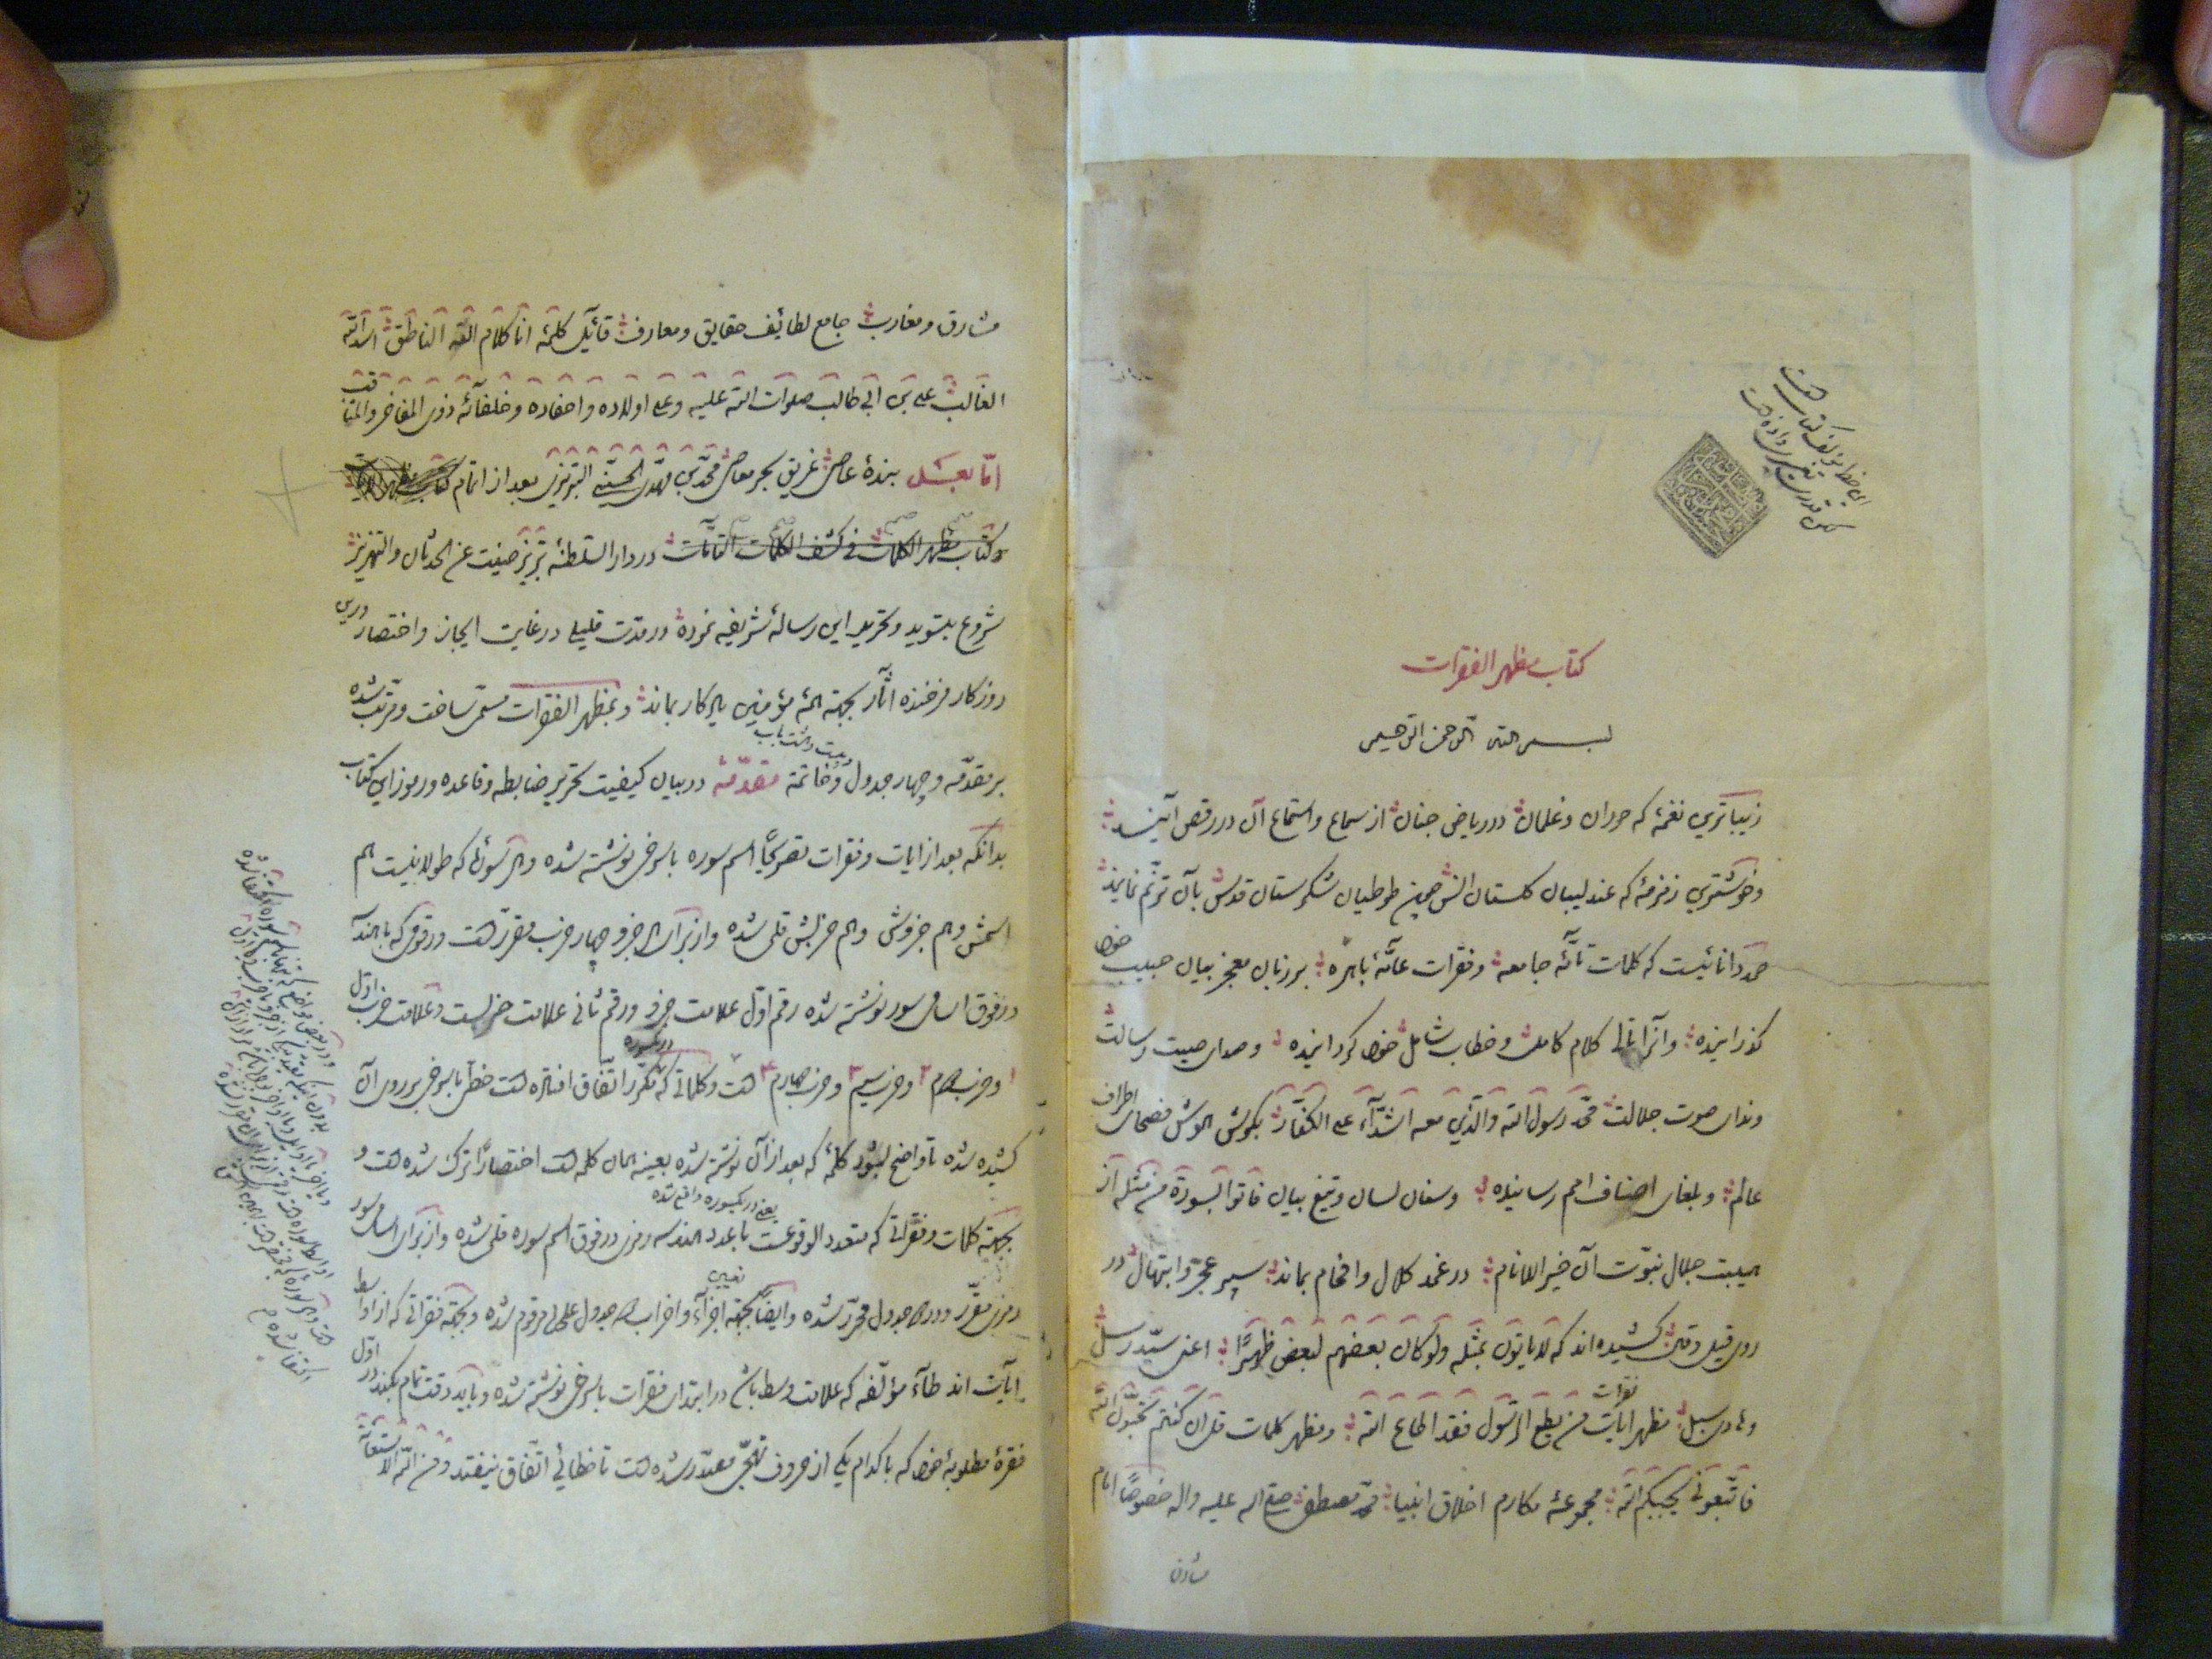 کتاب مظهر الفقرات
بسم الله الرحمن الرحیم
زیباترین نغمهٔ که حوران و غلمان در ریاض جنان از سماع و استماع آن در رقص آیند
و خوشترین زمزمهٔ که عندلیبان گلستان انس و طوطیان شکرستان قدس بآن ترنّم نمایند
حمد دانائیست که کلمات تامّهٔ جامعه و فقرات عامّهٔ باهره بر زبان معجز بیان حبیب خود
گذرانیده و آنرا تالی کلام کامل و خطاب شامل خود گردانیده و صدای صیت رسالت
و ندای صوت جلالت محمّد رسول الله والّذین معه اشدّآء علی الکفّار بگوش هوش فصحای اطراف
عالم و بلغای اصناف امم رسانیده و سنان لسان و تیغ بیان فاتوا بسورة من مثله از
هیبت جلال نبوّت آن خیر الانام در غمد کلال و افحام بماند سپر عجز و ابتهال در
روی قیل و قال کشیده‌اند که لا یاتون بمثله ولو کان بعضهم لبعض ظهیرًا اعنی سیّد رسل
و هادی سبل مظهر آیات فقرات من یطع الرّسول فقد اطاع الله و مظهر کلمات قل ان کنتم تحبّون الله
فاتّبعونی یحببکم الله مجموعهٔ مکارم اخلاق انبیا محمّد مصطفی صلی الله علیه واله خصوصًا امام
مشارق
مشارق و مغارب جامع لطائف حقایق و معارف قائل کلمهٔ انا کلام الله الناطق اسد الله
الغالب علی بن ابی طالب صلوات الله علیه و علی اولاده و احفاده و خلفائه ذوی المفاخر والمناقب
امّا بعد بندهٔ عاصی غریق بحر معاصی محمّد بن مهدی الحسینی التبریزی بعد از اتمام
و کتاب مظهر الکلمات فی کشف الکلمات التامّات در دار السّلطنهٔ تبریز صینت عن الحدثان والتهزیز
شروع بتسوید و تحریر این رسالهٔ شریفه نموده در مدّت قلیلی در غایت ایجاز و اختصار در این
روزگار فرخنده آثار بجهة ائمهٔ مؤمنین یادگار بماند و بمظهر الفقرات مسمّی ساخت و مرتّب شده
بر مقدّمه و چهار جدول و بیست و هشت باب و خاتمة مقدّمه در بیان کیفیت تحریر ضابطه و قاعده و رموز این کتاب
بدانکه بعد از ایات و فقرات تصریحًا اسم سوره با سرخی نوشته شده و هر سورهٔ که طولانیست هم
اسمش و هم جزوش و هم حزبش قلمی شده و از برای هر جزو چهار حزب مقرّر است و رقومی که با هندسه
در فوق اسامی سور نوشته شده رقم اوّل علامت جزو و رقم ثانی علامت حزبست و علامت حزب اوّل
۱ و حزب دوم ۲ و حزب سیم ۳ و حزب چهارم ۴ است و کلماتی که در یکسوره مکرّر اتّفاق افتاده است خطّی با سرخی بر روی آن
کشیده شده تا واضح بشود کلمهٔ که بعد از آن نوشته شده بعینه همان کلمه است اختصارًا ترک شده است و
بجهة کلمات و فقراتی که متعدد الوقوعست یعنی در یکسوره واقع شده با عدد هندسه رمزی در فوق اسم سوره قلمی شده و از برای اسامی سور
رمزی مقرّر و در جدول محرّر شده و ایضًا بجهة تعیین اجزآء و احزاب جدول علی‌حده مرقوم شده و بجهة فقراتی که از اواسط
آیات اند طآء مؤلّفه که علامت وسط باشد در ابتدای فقرات با سرخی نوشته شده و باید دقت تمام بکند در اوّل
فقرهٔ مطلوبهٔ خود که با کدام یکی از حروف تهجّی مصدّر شده است تا خطائی اتّفاق نیفتد و من الله الاستعانة